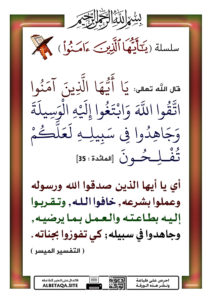 بسم الله الرحمن الرحيم
سلسلة ﴿يَٰٓأَيُّهَا ٱلَّذِينَ ءَامَنُوٓا۟﴾
قال الله تعالى: يَا أَيُّهَا الَّذِينَ آمَنُوا
اتَّقُوا اللَّهَ وَابْتَغُوا إِلَيْهِ الْوَسِيلَةَ
وَجَاهِدُوا فِي سَبِيلِهِ لَعَلَّكُمْ
تُفْلِحُونَ [المائدة : 35]
أي يا أيها الذين صدقوا الله ورسوله
وعملوا بشرعه, خافوا الله, وتقربوا
إليه بطاعته والعمل بما يرضيه,
وجاهدوا في سبيله; كي تفوزوا بجناته.
( التفسير الميسر )
ALBETAQA.SITE
احرص على طباعة
ونشر هذه الورقة